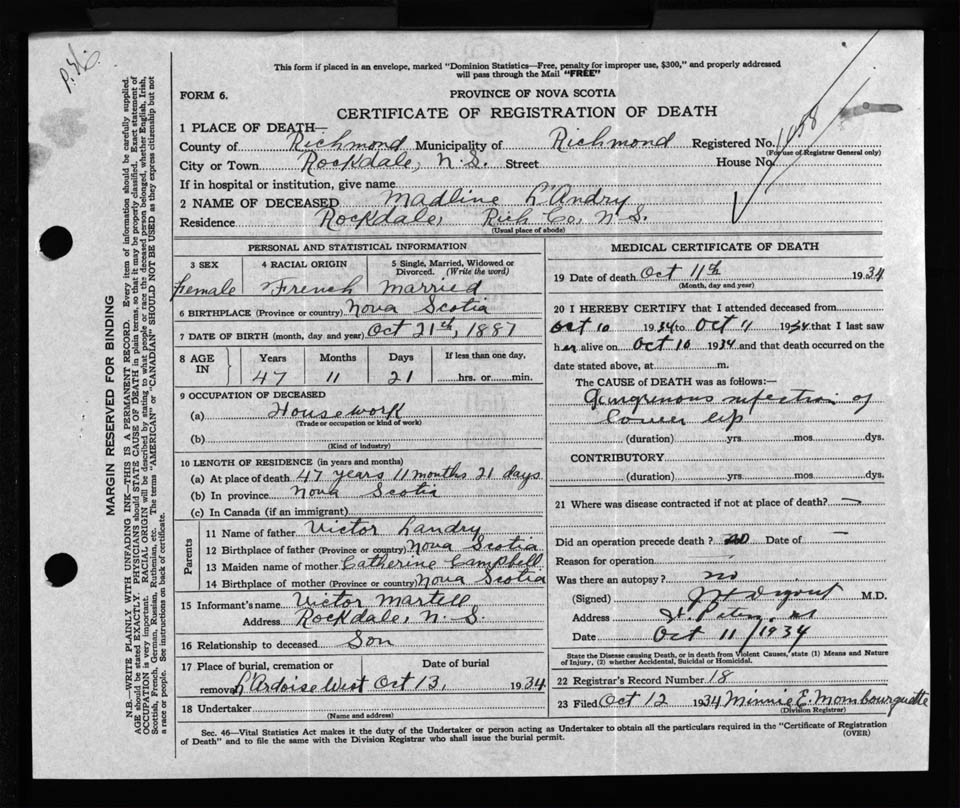 This form if placed in an envelope, marked "Dominion Statistics—Free, penalty for improper use, $300," and properly addressed
will pass through the Mail "FREE"
FORM 6.
PROVINCE OF NOVA SCOTIA
CERTIFICATE OF REGISTRATION OF DEATH
1 PLACE OF DEATH—
County of Richmond Municipality of Richmond Registered No. 1458
(For use of Registrar General only)
City or Town Rockdale, N.S. Street House No.
If in hospital or institution, give name
2 NAME OF DECEASED Madline L'Andry
Residence Rockdale, Rich Co, N.S.
(Usual place of abode)
PERSONAL AND STATISTICAL INFORMATION
3 SEX 4 RACIAL ORIGIN 5 Single, Married, Widowed or Divorced. (Write the word)
Female French Married
6 BIRTHPLACE (Province or country) Nova Scotia
7 DATE OF BIRTH (month, day and year) Oct 21th, 1887
8 AGE IN Years Months Days If less than one day,
47 11 21 hrs. or min.
9 OCCUPATION OF DECEASED
(a) Housework
(Trade or occupation or kind of work)
(b)
(Kind of industry)
10 LENGTH OF RESIDENCE (in years and months)
(a) At place of death 47 years 11 months 21 days
(b) In province Nova Scotia
(c) In Canada (if an immigrant)
Parents
11 Name of father Victor Landry
12 Birthplace of father (Province or country) Nova Scotia
13 Maiden name of mother Catherine Campbell
14 Birthplace of mother (Province or country) Nova Scotia
15 Informant's name Victor Martell
Address Rockdale, N.S.
16 Relationship to deceased Son
17 Place of burial, cremation or Date of burial
removal L'Ardoise West Oct 13, 1934
18 Undertaker
(Name and address)
MEDICAL CERTIFICATE OF DEATH
19 Date of death Oct 11th 1934
(Month, day and year)
20 I HEREBY CERTIFY that I attended deceased from
Oct 10 1934 to Oct 11 1934 that I last saw
her alive on Oct 10 1934 and that death occurred on the
date stated above, at m.
The CAUSE of DEATH was as follows:—
Gangrenous infection of
lower lip
(duration) yrs. mos. dys.
CONTRIBUTORY
(duration) yrs. mos. dys.
21 Where was disease contracted if not at place of death? —
Did an operation precede death? no Date of —
Reason for operation —
Was there an autopsy? no
(Signed) M.D.
Address St. Peters, NS
Date Oct 11/1934
State the Disease causing Death, or in death from Violent Causes, state (1) Means and Nature
of Injury, (2) whether Accidental, Suicidal or Homicidal.
22 Registrar's Record Number 18
23 Filed Oct 12 1934 Minnie E. Mombourquette
(Division Registrar)
Sec. 46—Vital Statistics Act makes it the duty of the Undertaker or person acting as Undertaker to obtain all the particulars required in the "Certificate of Registration
of Death" and to file the same with the Division Registrar who shall issue the burial permit.
(OVER)
MARGIN RESERVED FOR BINDING
N.B.—WRITE PLAINLY WITH UNFADING INK—THIS IS A PERMANENT RECORD. Every item of information should be carefully supplied.
AGE should be stated EXACTLY. PHYSICIANS should STATE CAUSE OF DEATH in plain terms, so that it may be properly classified. Exact statement of
OCCUPATION is very important. RACIAL ORIGIN will be described by stating to what people or race the deceased person belonged, whether English, Irish,
Scottish, French, German, Russian, Ruthenian, etc. The terms "AMERICAN" or "CANADIAN" SHOULD NOT BE USED as they express citizenship but not
a race or people. See instructions on back of certificate.